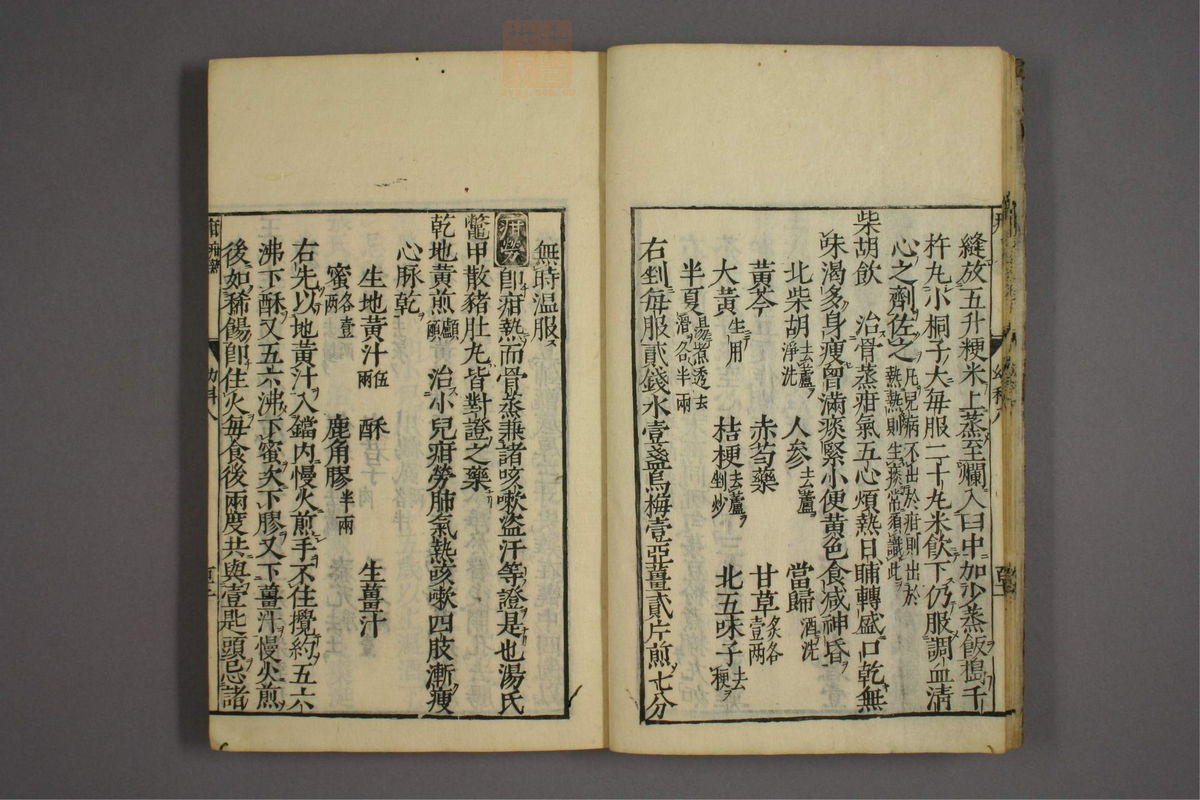 縫放五升粳米上蒸至爛入臼中加少蒸飯搗千
杵丸小桐子大每服二十丸米飲下仍服調血淸
心之劑佐之凡兒病不出於疳則出於熱熱則生痰常須識此
柴胡飲 治骨蒸疳氣五心煩熱日晡轉盛口乾無
味渴多身瘦胷滿痰緊小便黃色食減神昏
北柴胡去蘆淨洗 人參去蘆 當歸酒洗
黃芩 赤芍藥 甘草炙各壹兩
大黃生用 桔梗去蘆剉炒 北五味子去梗
半夏湯煮透去滑各半兩
右剉每服貳錢水壹盞烏梅壹亞薑貳片煎七分
無時温服
疳勞 卽疳熱而骨蒸兼諸咳嗽盜汗等證是也湯氏
鼈甲散豬肚丸皆對證之藥
乾地黃煎顱顖 治小兒疳勞肺氣熱咳嗽四肢漸瘦
心脉乾
生地黃汁伍兩 酥 生薑汁
蜜各壹兩 鹿角膠半兩
右先以地黃汁入鐺内慢火煎手不住攪約五六
沸下酥又五六沸下蜜次下膠又下薑汁慢火煎
後如稀餳卽住火每食後兩度共與壹匙頭忌諸